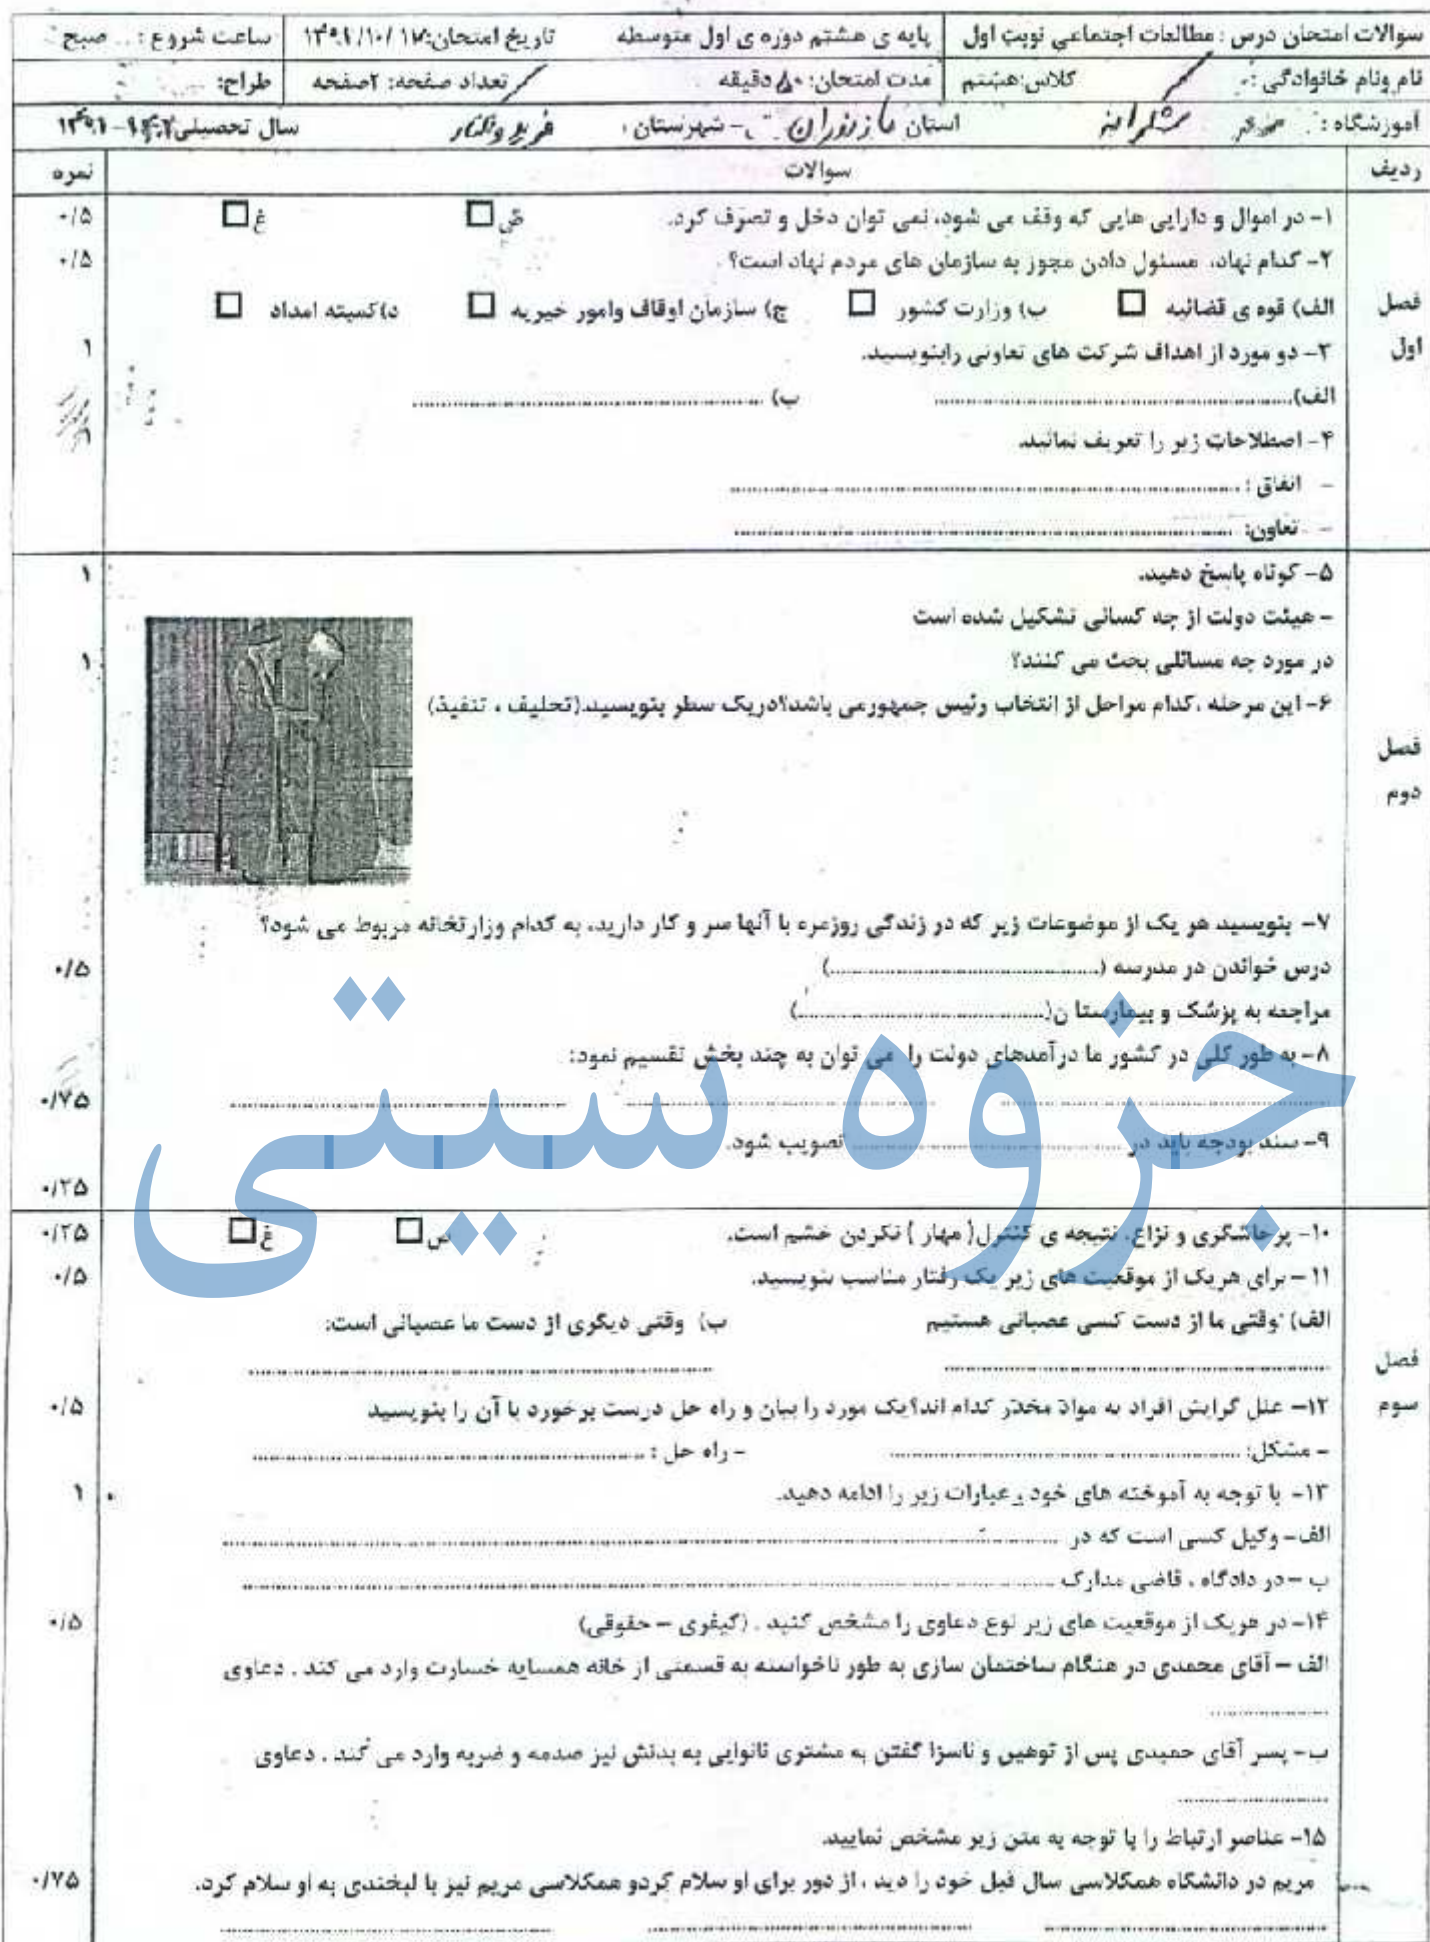 سوالات امتحان درس : مطالعات اجتماعی نوبت اول پایه ی هشتم دوره ی اول متوسطه تاریخ امتحان: ساعت شروع : صبح
نام ونام خانوادگی : کلاس:هشتم مدت امتحان: ۵۰ دقیقه تعداد صفحه: ۲صفحه طراح:
آموزشگاه : استان مازندران - شهرستان : فریدونکنار سال تحصیلی
ردیف سوالات نمره
فصل اول
۱- در اموال و دارایی هایی که وقف می شود، نمی توان دخل و تصرف کرد. ص □ غ □ ۰/۵
۲- کدام نهاد، مسئول دادن مجوز به سازمان های مردم نهاد است؟ ۰/۵
الف) قوه ی قضائیه □ ب) وزارت کشور □ ج) سازمان اوقاف وامور خیریه □ د)کمیته امداد □
۳- دو مورد از اهداف شرکت های تعاونی رابنویسید. ۱
الف)........................ ب) ........................
۴- اصطلاحات زیر را تعریف نمائید. ۱
- انفاق : ........................
- تعاون: ........................
فصل دوم
۵- کوتاه پاسخ دهید. ۱
- هیئت دولت از چه کسانی تشکیل شده است
در مورد چه مسائلی بحث می کنند؟ ۱
۶- این مرحله ،کدام مراحل از انتخاب رئیس جمهورمی باشد؟دریک سطر بنویسید.(تحلیف ، تنفیذ)
۷- بنویسید هر یک از موضوعات زیر که در زندگی روزمره با آنها سر و کار دارید، به کدام وزارتخانه مربوط می شود؟
درس خواندن در مدرسه (........................) ۰/۵
مراجعه به پزشک و بیمارستا ن(........................)
۸- به طور کلی در کشور ما درآمدهای دولت را می توان به چند بخش تقسیم نمود:
........................ ........................ ........................ ۰/۷۵
۹- سند بودجه باید در ........................ تصویب شود.
۰/۲۵
جزوه سیتی
فصل سوم
۱۰- پرخاشگری و نزاع، نتیجه ی کنترل( مهار ) نکردن خشم است. ص □ غ □ ۰/۲۵
۱۱ - برای هریک از موقعیت های زیر یک رفتار مناسب بنویسید. ۰/۵
الف) وقتی ما از دست کسی عصبانی هستیم ب) وقتی دیگری از دست ما عصبانی است:
........................ ........................
۱۲- علل گرایش افراد به مواد مخدر کدام اند؟یک مورد را بیان و راه حل درست برخورد با آن را بنویسید ۰/۵
- مشکل: ........................ - راه حل : ........................
۱۳- با توجه به آموخته های خود ، عبارات زیر را ادامه دهید. ۱
الف- وکیل کسی است که در ........................
ب -در دادگاه ، قاضی مدارک ........................
۱۴- در هریک از موقعیت های زیر نوع دعاوی را مشخص کنید . (کیفری - حقوقی) ۰/۵
الف - آقای محمدی در هنگام ساختمان سازی به طور ناخواسته به قسمتی از خانه همسایه خسارت وارد می کند . دعاوی
........................
ب- پسر آقای حمیدی پس از توهین و ناسزا گفتن به مشتری نانوایی به بدنش نیز صدمه و ضربه وارد می کند . دعاوی
........................
۱۵- عناصر ارتباط را با توجه به متن زیر مشخص نمایید.
مریم در دانشگاه همکلاسی سال قبل خود را دید ، از دور برای او سلام کردو همکلاسی مریم نیز با لبخندی به او سلام کرد. ۰/۷۵
........................ ........................ ........................